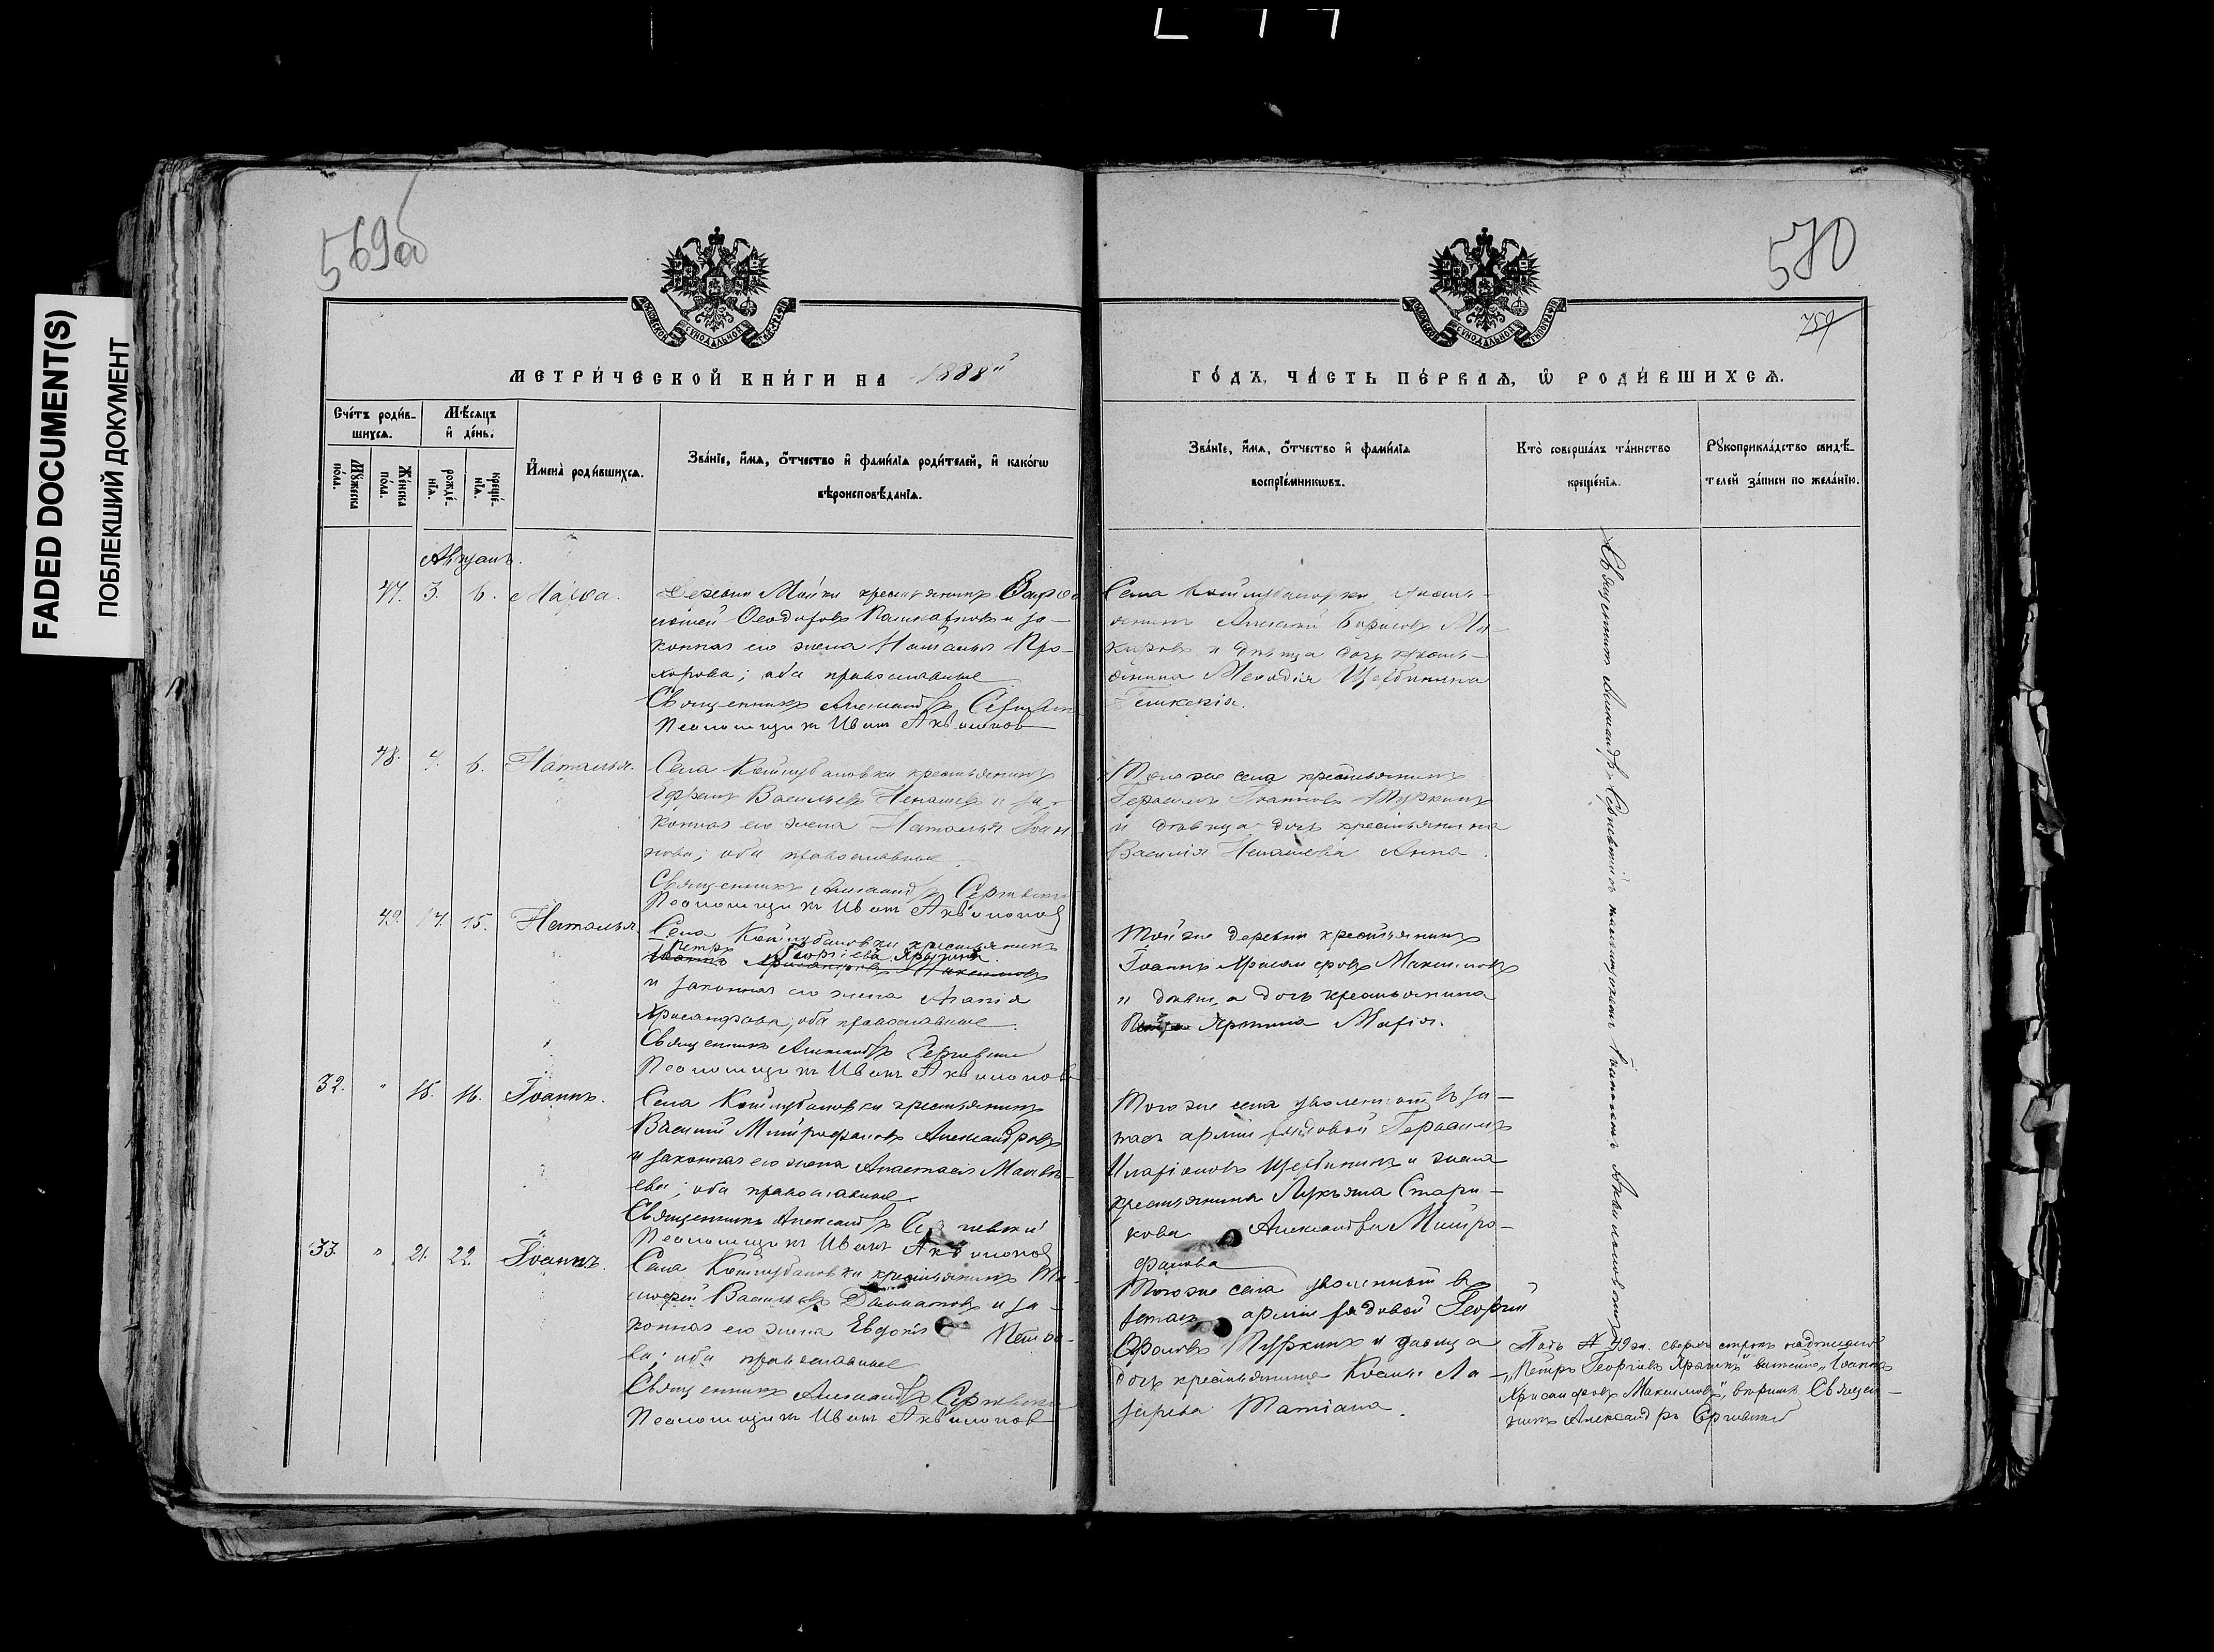 FADED DOCUMENT(S)
ПОБЛЕКШИЙ ДОКУМЕНТ
569об
570
759
МЕТРИ́ЧЕСКОЙ КНИ́ГИ НА 1888й
ГО́ДЪ, ЧА́СТЬ ПЕ́РВАЯ, Ѡ РОДИ́ВШИХСЯ.
Сче́тъ роди́в-
шихся.
Мѣ́сяцъ
и҆ де́нь.
Мꙋ́жеска
по́ла.
Же́нска
по́ла.
рожде́-
нїѧ.
креще́-
нїѧ.
И҆мена̀ роди́вшихся.
Зва́нїе, и҆́мя, ѻ҆́тчество и҆ фами́лїя роди́телей, и҆ како́гѡ
вѣроисповѣ́данїя.
Зва́нїе, и҆́мя, ѻ҆́тчество и҆ фами́лїя
воспрїе́мникѡвъ.
Кто̀ соверша́лъ та́инство
креще́нїя.
Рꙋкоприкла́дство свидѣ́-
телей за́писи по жела́нїю.
Августъ.
47. 3. 6.
Деревни Майки крестьянинъ
Ѳеодоровъ и за-
конная его жена Наталья Про-
хорова; оба православные
Священникъ Александръ Сергиевский
Псаломщикъ Иванъ Аквилоновъ
крестья-
Алексѣй Борисовъ
и дѣвица дочь кресть-
янина Меѳодія Щербинина
48. 4. 6. Наталья.
Села Кочкубановки крестьянинъ
Ефремъ Васильевъ Ненашевъ и за-
конная его жена Наталья Іоан-
нова; оба православные.
Священникъ Александръ Сергиевский
Псаломщикъ Иванъ Аквилоновъ
Того же села крестьянинъ
Герасимъ Іоанновъ Пуркинъ
и дѣвица дочь крестьянина
Василія Ненашева Анна.
49. 14. 15. Наталья
Села Кочкубановки крестьянинъ
Петръ Георгіевъ Ярыгинъ
Іоаннъ Хрисанфовъ Максимовъ
и законная его жена Агапія
Хрисанфова; оба православные.
Священникъ Александръ Сергиевский
Псаломщикъ Иванъ Аквилоновъ
Той же деревни крестьянинъ
Іоаннъ Хрисанфовъ Максимовъ
и дѣвица дочь крестьянина
Марія.
32. " 15. 16. Іоаннъ.
Села Кочкубановки крестьянинъ
Василій Митрофановъ Александровъ
и законная его жена Анастасія Матвѣ-
ева; оба православные.
Священникъ Александръ Сергиевский
Псаломщикъ Иванъ Аквилоновъ
Того же села уволенный въ за-
пасъ арміи рядовой Герасимъ
Иларіоновъ Щербининъ и жена
крестьянина Лукьяна Стари-
кова Александра Митро-
фанова
33. " 21. 22. Іоаннъ.
Села Кочкубановки крестьянинъ Ти-
моѳей Васильевъ Долматовъ и за-
конная его жена Евдокія Петро-
ва; оба православные
Священникъ Александръ Сергиевский
Псаломщикъ Иванъ Аквилоновъ
Того же села уволенный въ
запасъ арміи рядовой Георгій
Пуркинъ и дѣвица
дочь крестьянина Косьмы Ла-
зарева Татіана.
Священникъ Александръ Сергіевскій съ псаломщикомъ Іоанномъ Аквилоновымъ
Подъ № 49 ж. сверхъ строкъ надписано
„Петръ Георгіевъ Ярыгинъ" вмѣсто „Іоаннъ
Хрисанфовъ Максимовъ", вѣрно. Священ-
никъ Александръ Сергиевский